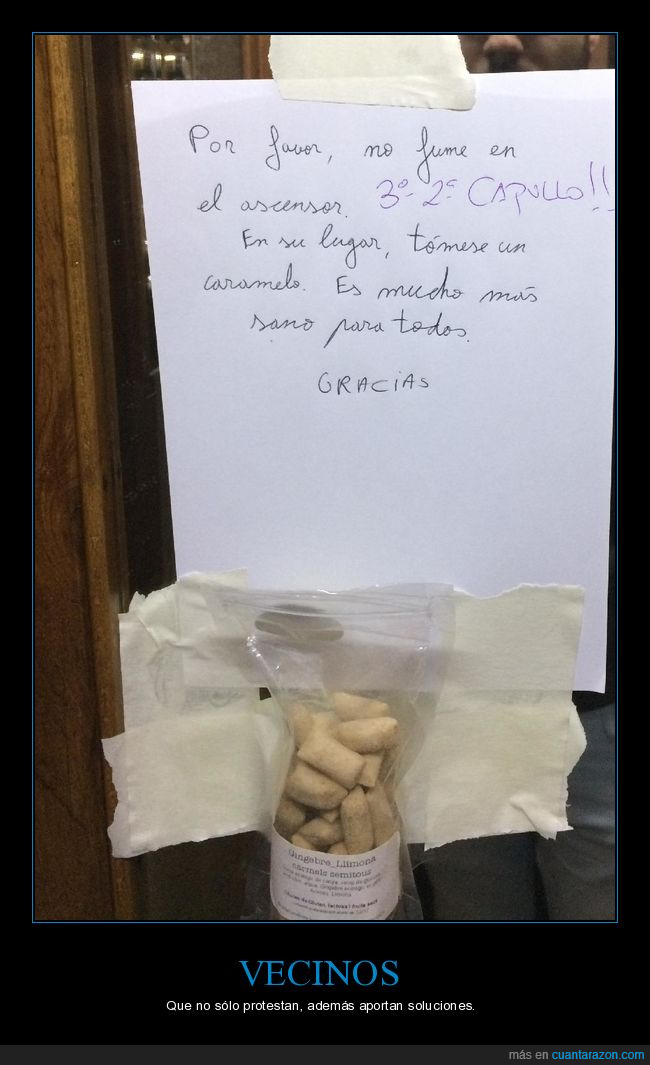 Por favor, no fume en
el ascensor. 3º 2ª CAPULLO!!
En su lugar, tómese un
caramelo. Es mucho más
sano para todos.
GRACiAS
Gingebre_Llimona
carmels semitous
VECINOS
Que no sólo protestan, además aportan soluciones.
más en cuantarazon.com